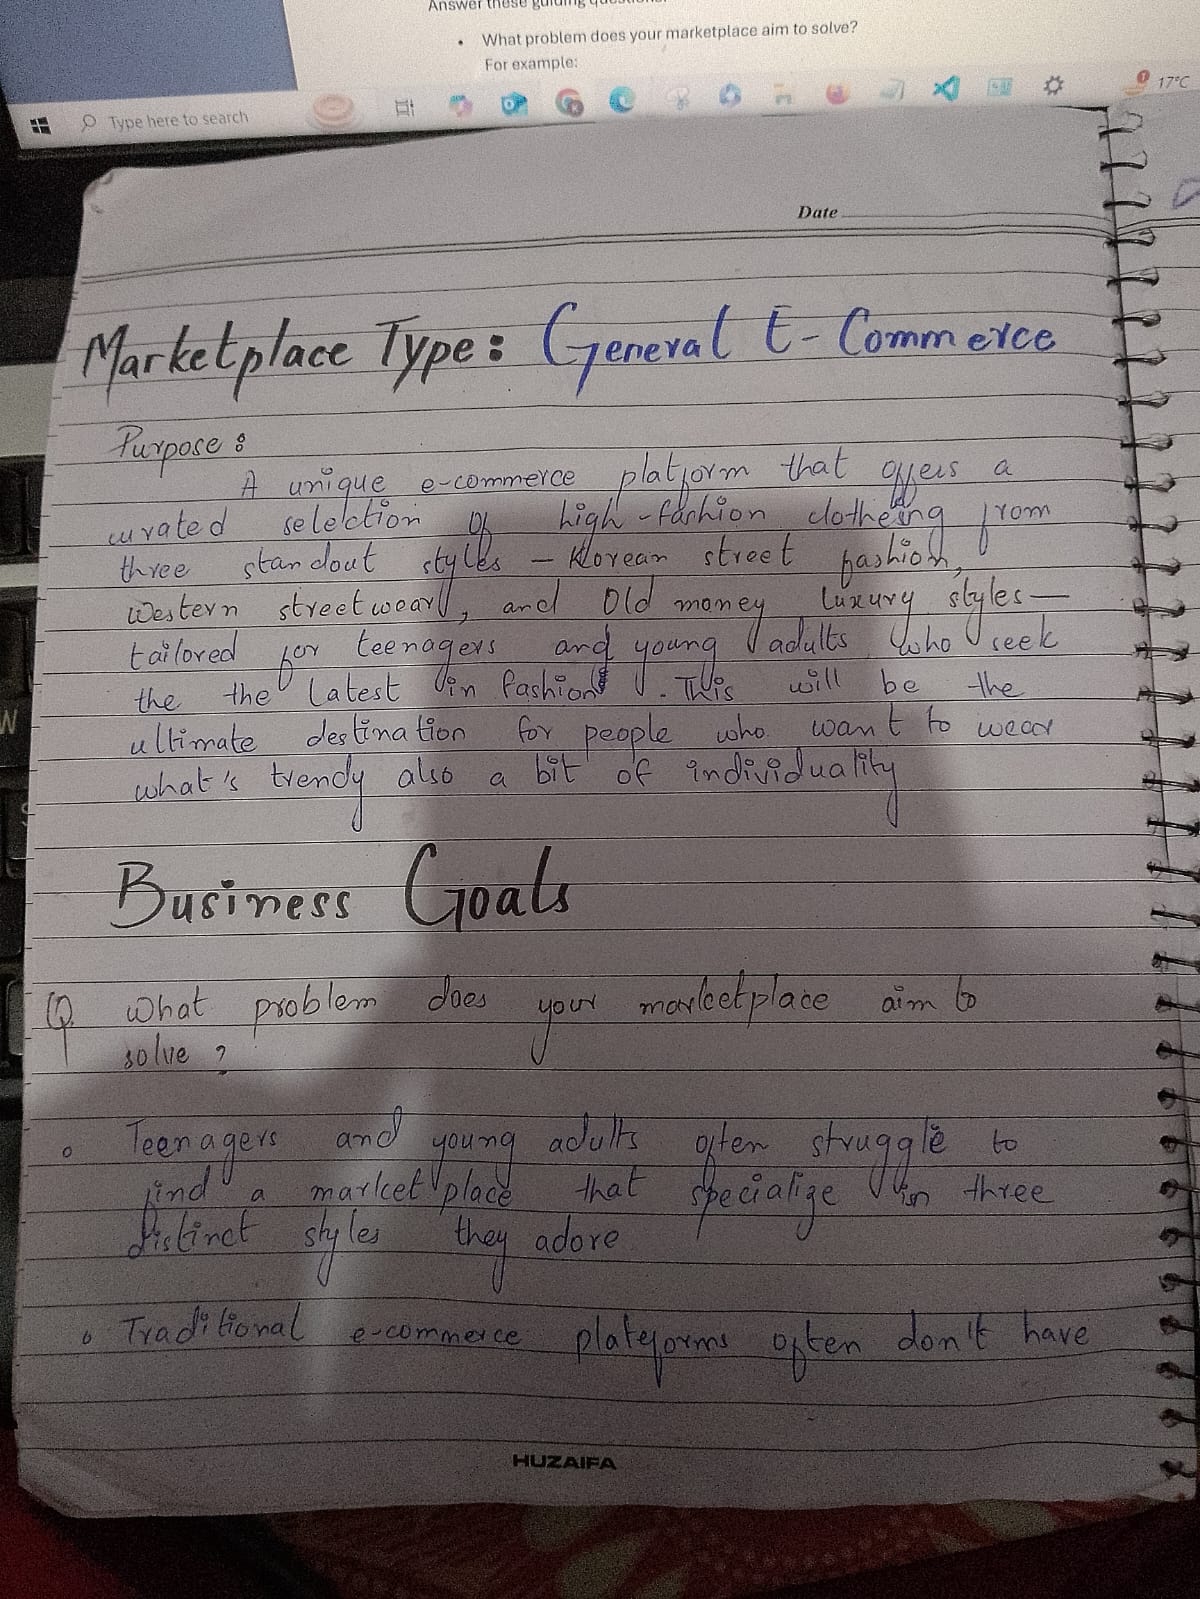 Answer these guiding questions:
• What problem does your marketplace aim to solve?
For example:
Type here to search
17°C
Date
Marketplace Type: General E-Commerce
Purpose:
A unique e-commerce platform that offers a
curated selection of high-fashion clotheing from
three standout styles – Korean street fashion,
Western streetwear, and Old money luxury styles—
tailored for teenagers and young adults who seek
the the latest in fashion. This will be the
ultimate destination for people who want to wear
what's trendy also a bit of individuality
Business Goals
Q. What problem does your marketplace aim to
solve?
o Teenagers and young adults often struggle to
find a marketplace that specialize in three
distinct styles they adore
o Traditional e-commerce plateforms often don't have
HUZAIFA